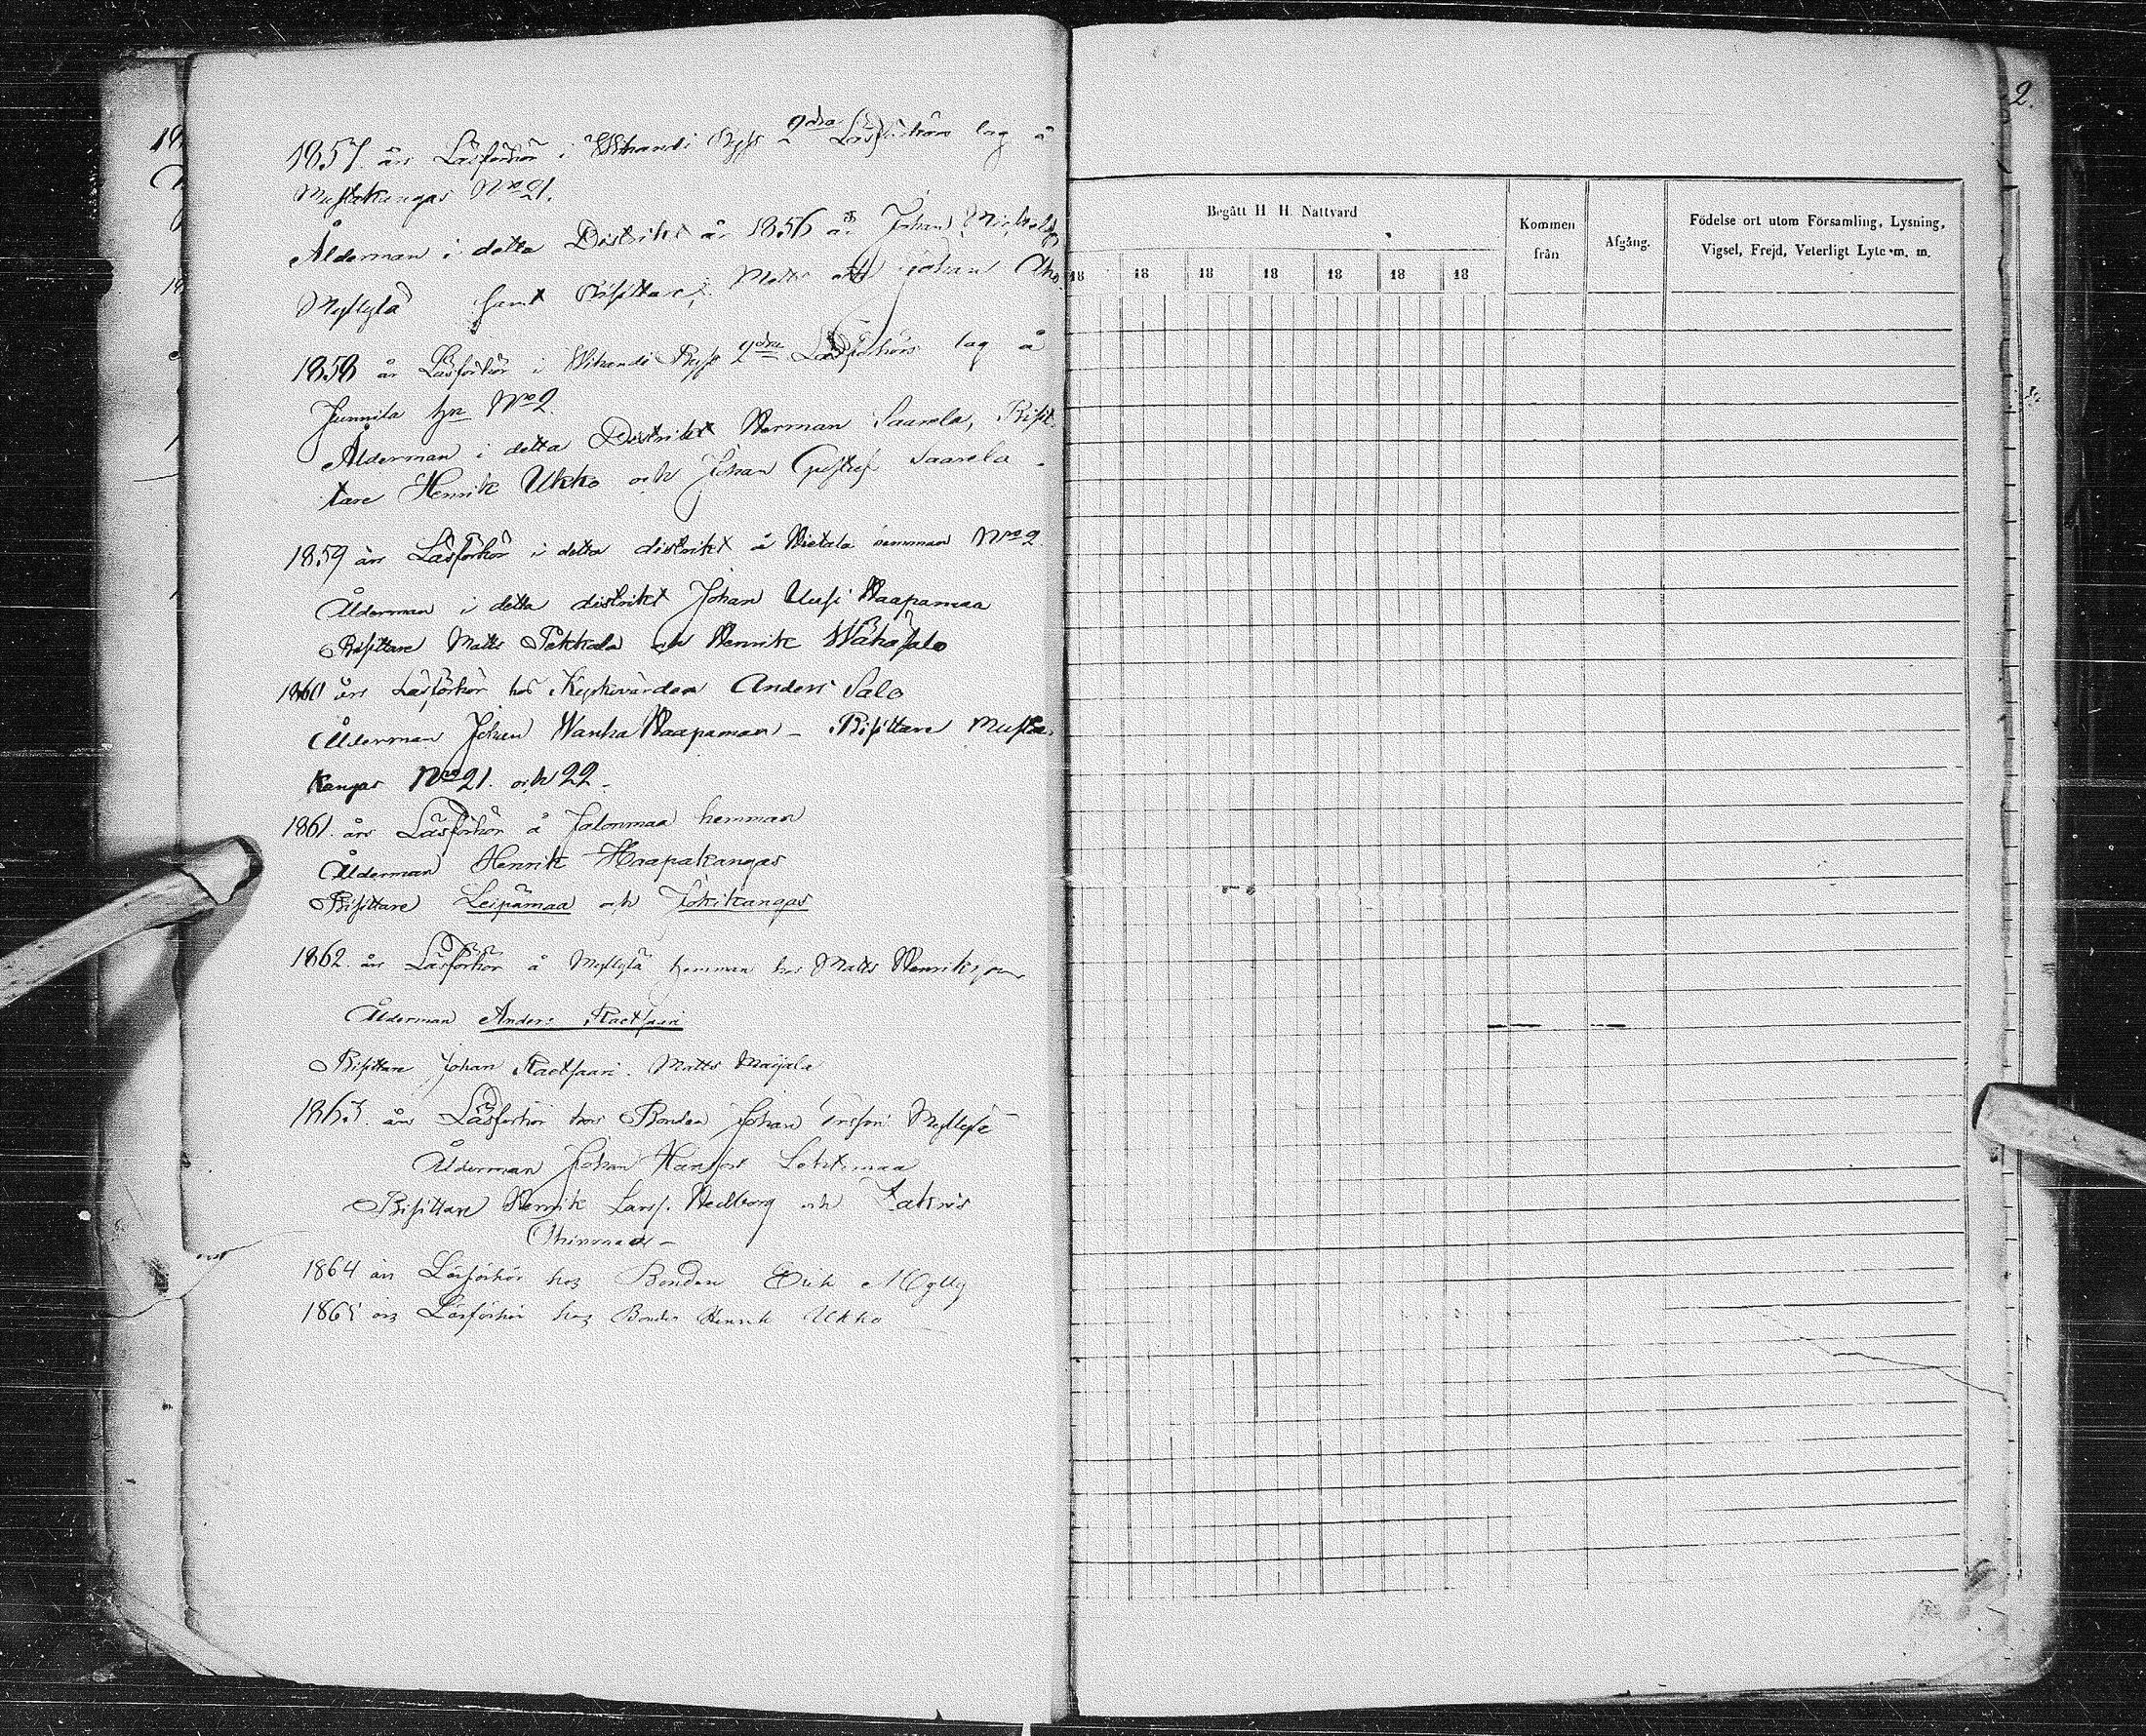 1857 års Läsförhör i Wihandi Byss 2dra Läsförhörs lag å
Mustakangas No 21.
Ålderman i detta Distrikt år 1856 är Johan
Myllylä samt Bisittare, Matts och Johan Aho.
1858 års Läsförhör i Wihandi Byss 2dra Läsförhörs lag å
Junnila hn No 2.
Ålderman i detta Distrikt Herman Saarela, Bisit-
tare Henrik Ukko och Johan Gustaf Saarela.
1859 års Läsförhör i detta distrikt å Hietala hemman No 2
Ålderman i detta distrikt Johan Uusi Haapamaa
Bisittare Matts Pekkala och Henrik Wähäsalo
1860 års Läsförhör hos Kyrkivärden Anders Salo
Ålderman Johan Wanha Haapamaa – Bisittare Musta-
kangas No 21. och 22 –
1861. års Läsförhör å Jalonmaa hemman
Ålderman Henrik Haapakangas
Bisittare Leipämaa och Jokikangas
1862. års Läsförhör å Myllylä hemman hos Matts Henriksson
Ålderman Anders Raetsaari
Bisittare Johan Raetsaari. Matts Maijala
1863. års Läsförhör hos Bonden Johan Myllylä
Ålderman Johan Hansson Lehtimaa
Bisittare Henrik Larss. Hedberg och
1864 års Läsförhör hos Bonden Erik Mylly
1865 års Läsförhör hos Bonden Henrik Ukko
2.
Begått H H. Nattvard
Kommen från
Afgång.
Födelse ort utom Församling, Lysning,
Vigsel, Frejd, Veterligt Lyte m. m.
18 18 18 18 18 18 18